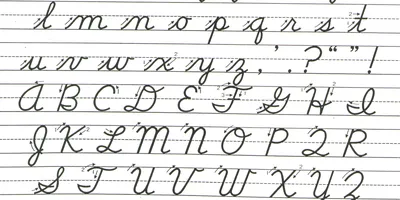 l m n o p q r s t
u v w x y z , ' . ? “ ” !
A B C D E F G H I
J K L M N O P Q R
S T U V W X Y Z